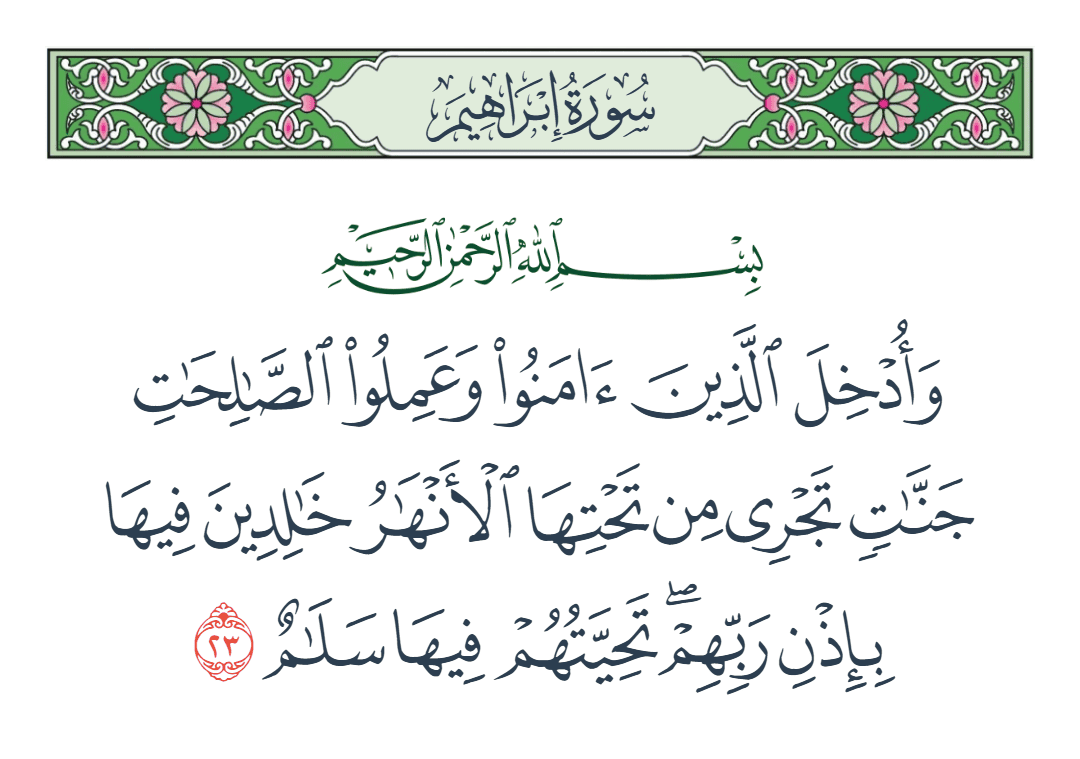 سُورَةُ إِبْرَاهِيمَ
بِسْمِ ٱللَّهِ ٱلرَّحْمَٰنِ ٱلرَّحِيمِ
وَأُدْخِلَ ٱلَّذِينَ ءَامَنُوا۟ وَعَمِلُوا۟ ٱلصَّٰلِحَٰتِ
جَنَّٰتٍ تَجْرِى مِن تَحْتِهَا ٱلْأَنْهَٰرُ خَٰلِدِينَ فِيهَا
بِإِذْنِ رَبِّهِمْ ۖ تَحِيَّتُهُمْ فِيهَا سَلَٰمٌ ٢٣